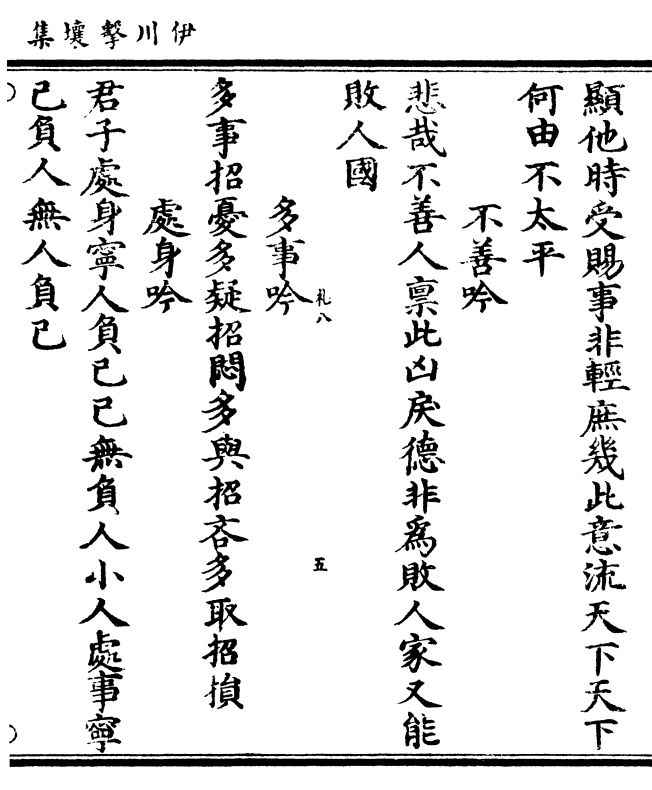 伊川擊壤集
顯他時受賜事非輕庶幾此意流天下天下
何由不太平
不善吟
悲哉不善人禀此凶戾德非為敗人家又能
敗人國
札八
五
多事吟
多事招憂多疑招悶多與招吝多取招損
處身吟
君子處身寧人負己己無負人小人處事寧
己負人無人負己